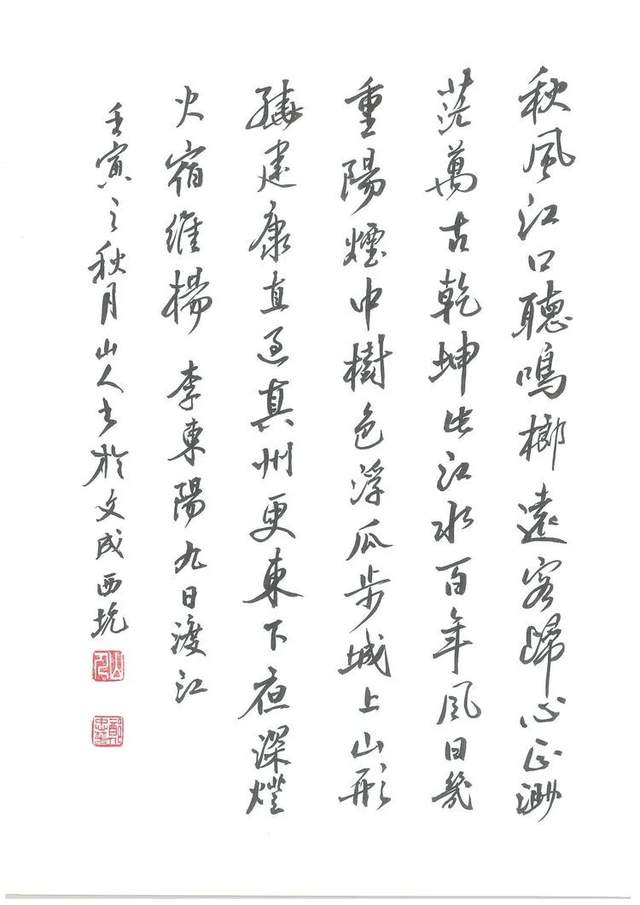 秋風江口聽鳴榔遠客歸心正渺
茫萬古乾坤此江水百年風日幾
重陽煙中樹色浮瓜步城上山形
繞建康直過真州更東下夜深燈
火宿維揚 李東陽九日渡江
壬寅之秋月山人書於文成西坑